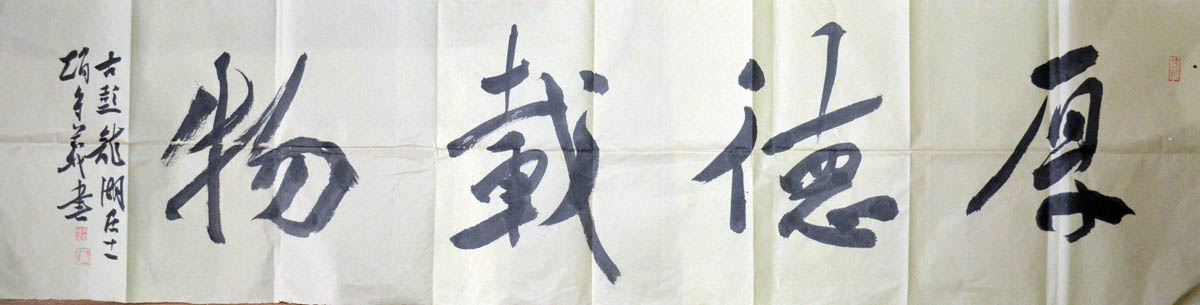 厚德載物
古彭龍湖居士
趙守義書